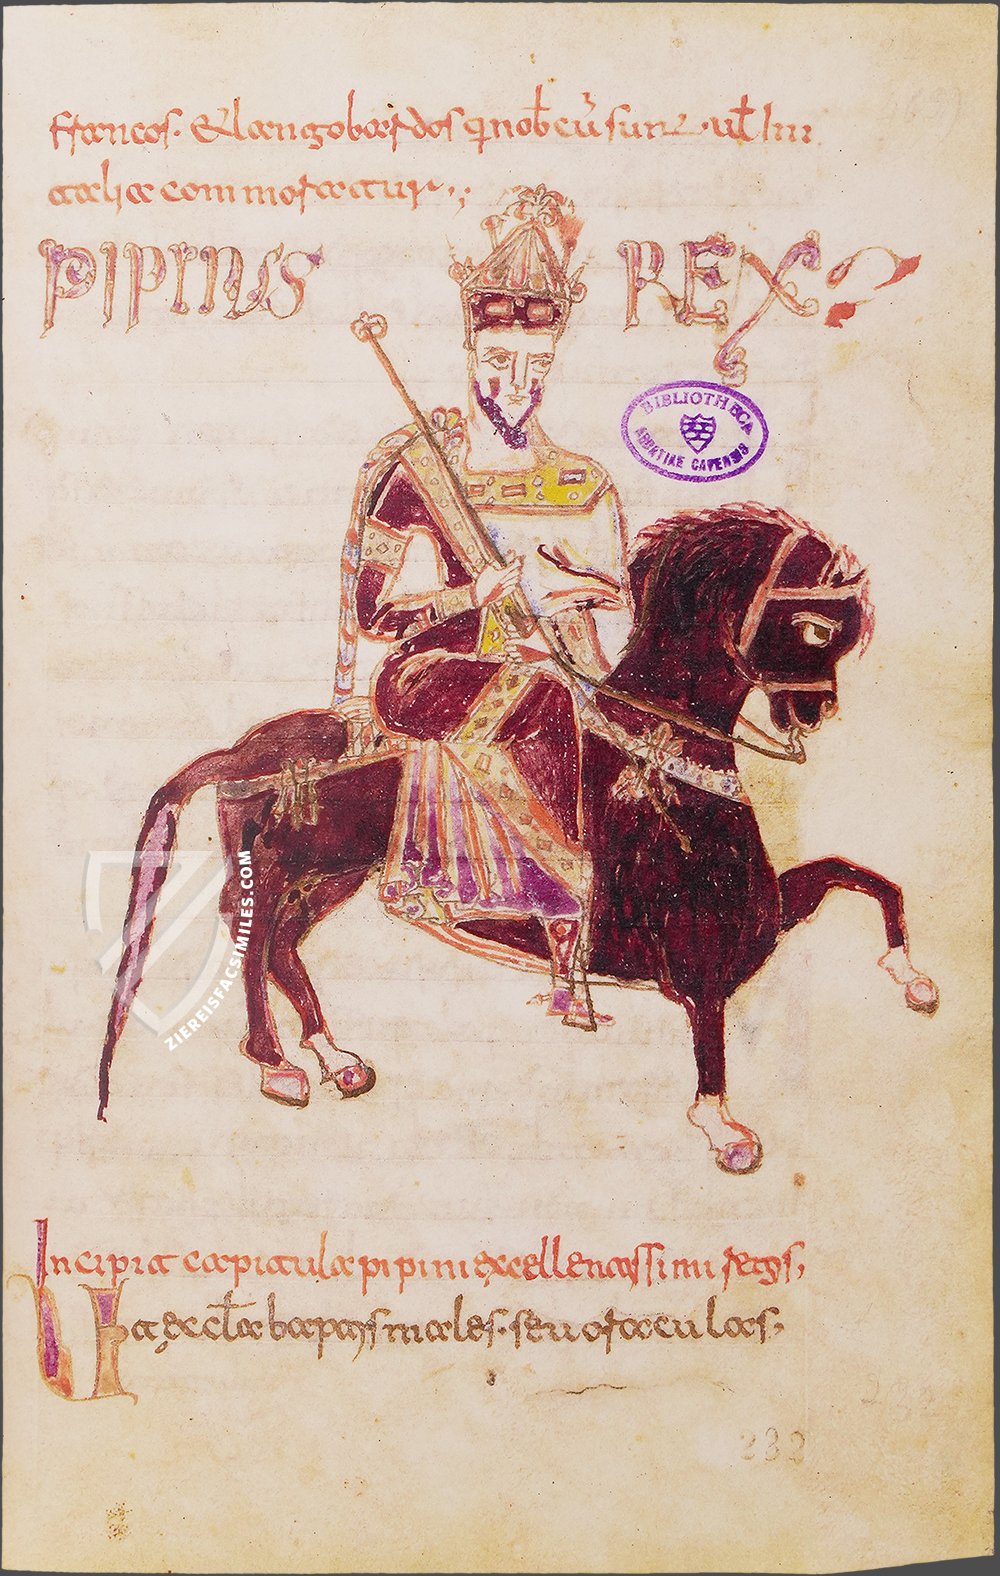 francos · & langobardos q nob cũ sunt · ul in
italia commoratur ·,;
PIPINUS REX
BIBLIOTHECA
ABBATIAE CAVENSIS
ZIEREISFACSIMILES.COM
Incipit capitula pipini excellentissimi regis,
Ut aeccl̄a baptismales · seu oraculas,
232